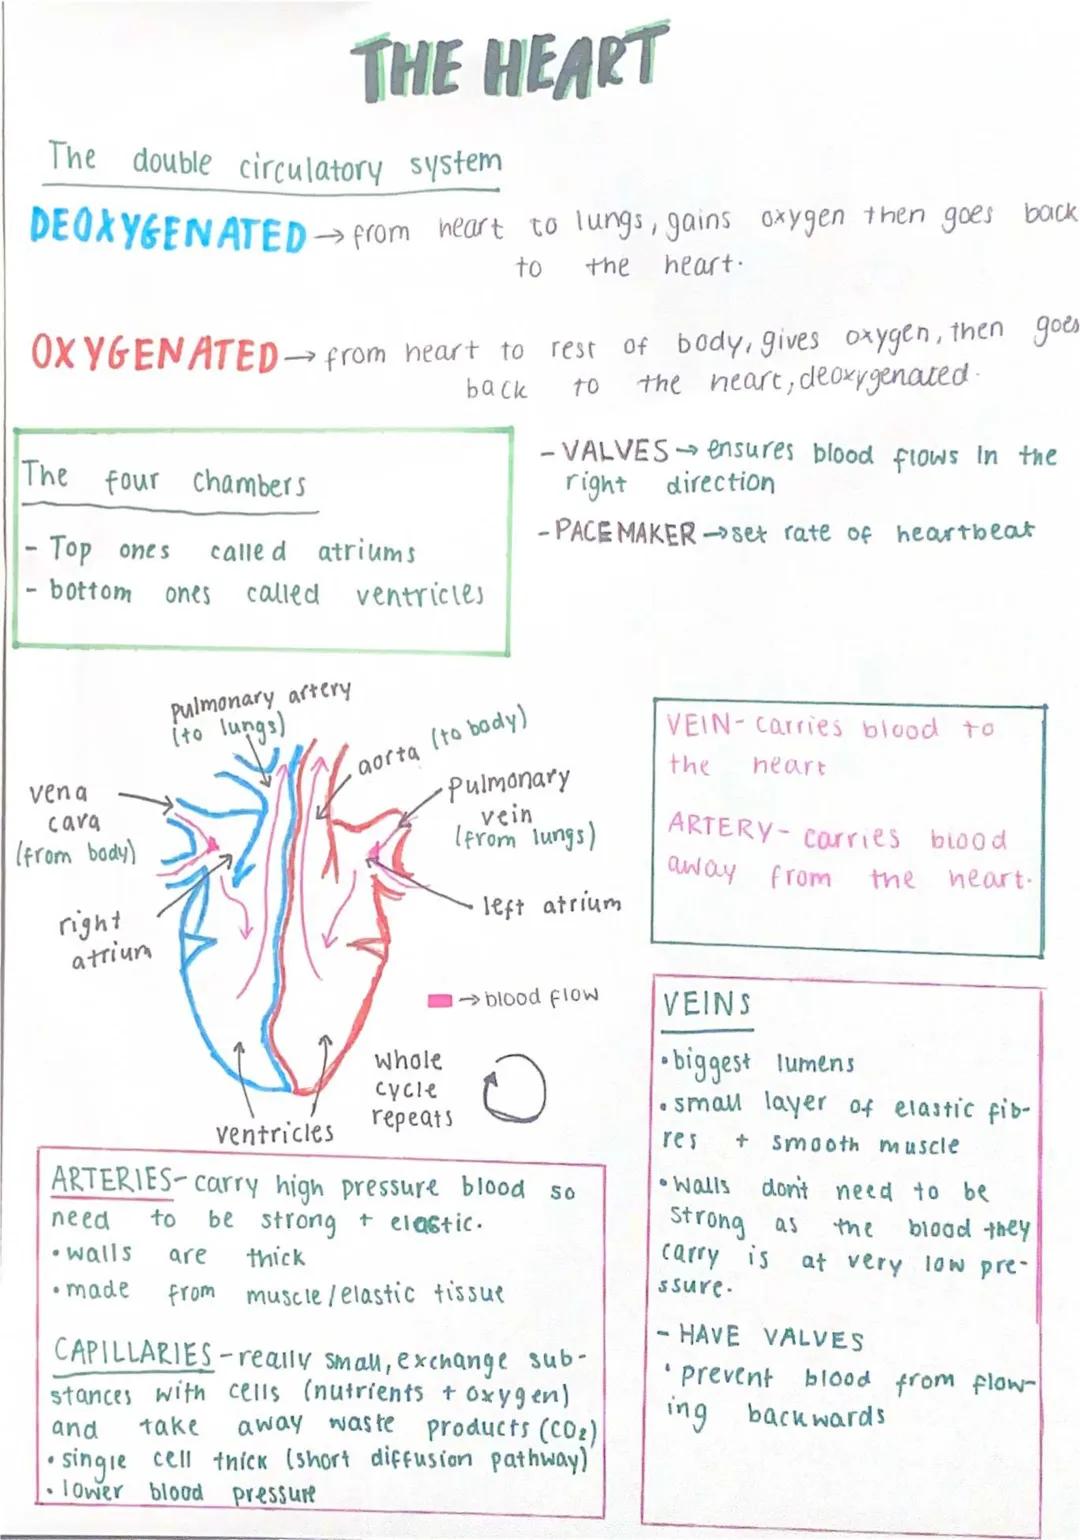 THE HEART
The double circulatory system
DEOXYGENATED → from heart to lungs, gains oxygen then goes back
to the heart.
OXYGENATED → from heart to rest of body, gives oxygen, then goes
back to the heart, deoxygenated.
The four chambers
- Top ones called atriums
- bottom ones called ventricles
- VALVES → ensures blood flows in the
right direction
- PACEMAKER → set rate of heartbeat
pulmonary artery
(to lungs)
aorta (to body)
vena
cava
(from body)
pulmonary
vein
(from lungs)
right
atrium
left atrium
→ blood flow
whole
cycle
repeats
ventricles
VEIN - carries blood to
the heart
ARTERY - carries blood
away from the heart.
ARTERIES - carry high pressure blood so
need to be strong + elastic.
• walls are thick
• made from muscle/elastic tissue
CAPILLARIES - really small, exchange sub-
stances with cells (nutrients + oxygen)
and take away waste products (CO₂)
• single cell thick (short diffusion pathway)
• lower blood pressure
VEINS
• biggest lumens
• small layer of elastic fib-
res + smooth muscle
• walls don't need to be
strong as the blood they
carry is at very low pre-
ssure.
- HAVE VALVES
• prevent blood from flow-
ing backwards